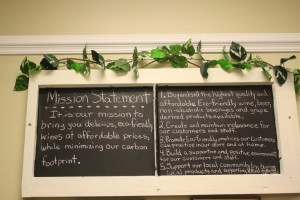 Mission Statement
It is our mission to
bring you delicious, eco-friendly
wines at affordable prices
while minimizing our carbon
footprint.
1. Buy and sell the highest quality and
affordable Eco-friendly wine, beer,
non-alcoholic beverages and grape
derived products available.
2. Create and maintain relevance for
our customers and staff.
3. Promote Eco-friendly practices our customers
can practice in our store and at home.
4. Build a supportive and positive environment
for our customers and staff.
5. Support our local community by
local products and supporting local